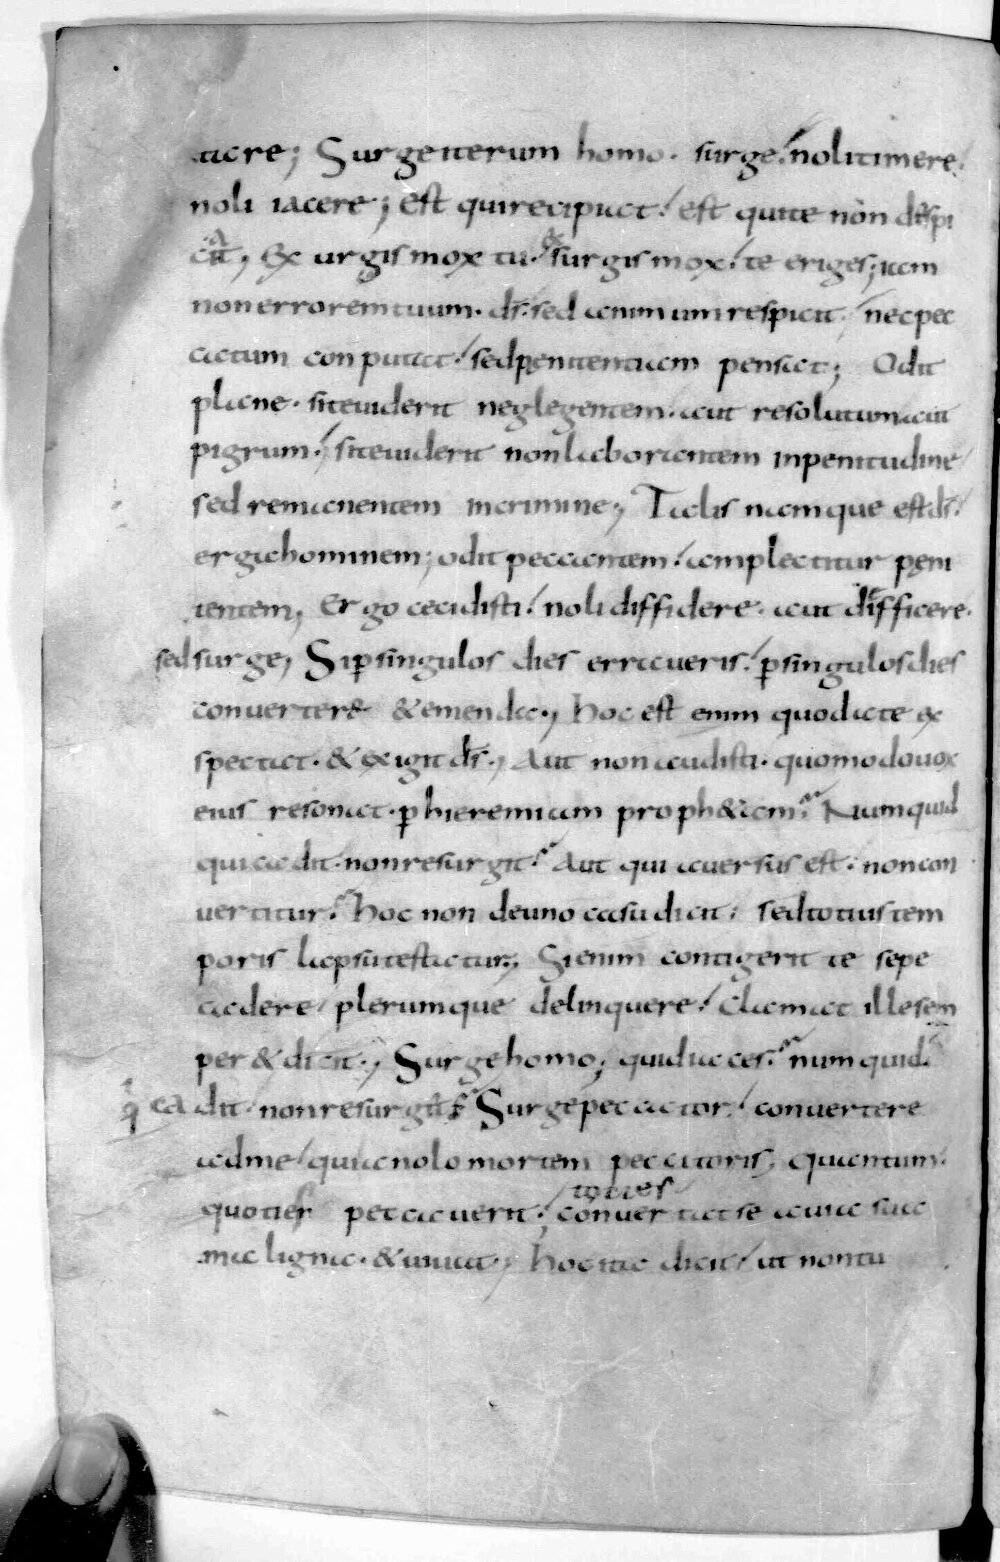 tare; Surge iterum homo. surge. noli timere.
noli iacere; est qui recipiat. est qui te non dispi
ciat; Exurgis mox tu. exsurgis mox. te eriges; iam
non errorem tuum. ds. sed animum respicit. nec pec
catum conputat. sed penitentiam pensat; Odit
plane. si te uiderit neglegentem. aut resolutum aut
pigrum. si te uiderit non laborantem in penitudine
sed remanentem in crimine; Talis namque est ds.
erga hominem; odit peccantem. amplectitur pęni
tentem; Ergo cecidisti. noli diffidere. aut difficere.
sed surge; Si p singulos dies erraueris. p singulos dies
conuertere & emenda; hoc est enim quod a te ex
spectat. & exigit ds; Aut non audisti. quomodo uox
eius resonat. p hieremiam proph&am. Numquid
qui cadit. non resurgit. Aut qui auersus est. non con
uertitur. hoc non de uno casu dicit. sed totius tem
poris lapsu testatur; Si enim contigerit te sepe
cadere plerumque delinquere. clamat ille sem
per & dicit; Surge homo; quid iaces. numquid
q ca dit non resurgit Surge peccator. conuertere
ad me quia nolo mortem peccatoris; Quantum.
quoties peccauerit; toties conuertat se a uia sua
maligna. & uiuat; hoc ita dicit ut non tu